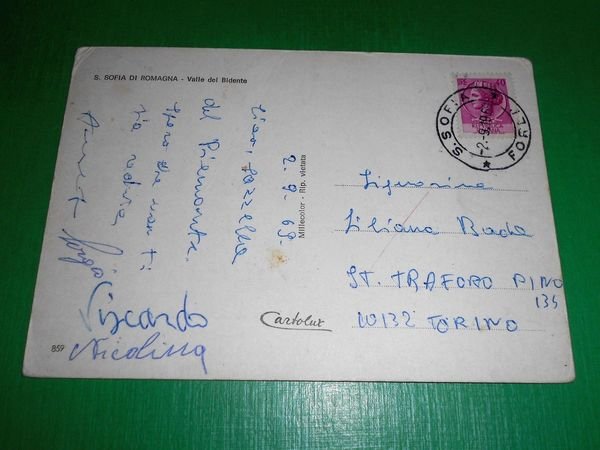 S. SOFIA DI ROMAGNA - Valle del Bidente
2.9.69.
Ciao, gazzella
del Piemonte.
Spero che non ti
sia
Sergio
Viscardo
Nicolina
859
Millecolor - Rip. vietata
Cartolux
40
S. SOFIA
FORLI
-2.9.
Signorina
Liliana Bada
ST. TRAFORO PINO
135
10132 TORINO